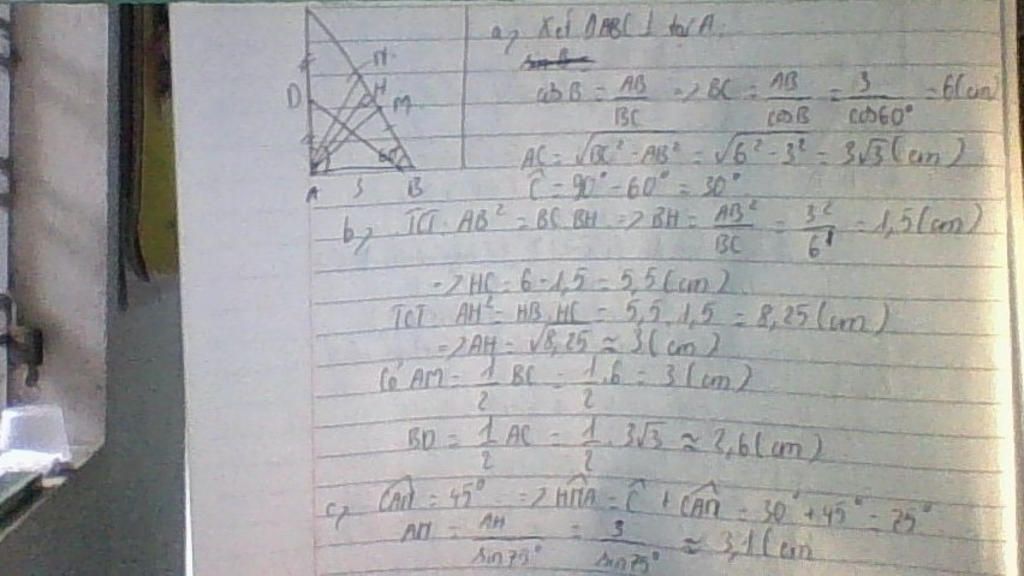 a, Xét ΔABC ⊥ tại A.
cosB = AB/BC => BC = AB/cosB = 3/cos60° = 6(cm)
AC = √BC² - AB² = √6² - 3² = 3√3(cm)
Ĉ = 90° - 60° = 30°
b, TCT: AB² = BC.BH => BH = AB²/BC = 3²/6 = 1,5(cm)
=> HC = 6 - 1,5 = 5,5(cm)
TCT: AH² = HB.HC = 5,5.1,5 = 8,25(cm)
=> AH = √8,25 ≈ 3(cm)
Có AM = 1/2 BC = 1/2.6 = 3(cm)
BD = 1/2 AC = 1/2.3√3 ≈ 2,6(cm)
c, = 45° => = Ĉ + = 30° + 45° = 75°
= AH/sin75° = 3/sin75° ≈ 3,1(cm
N
D
H
M
60°
A
3
B